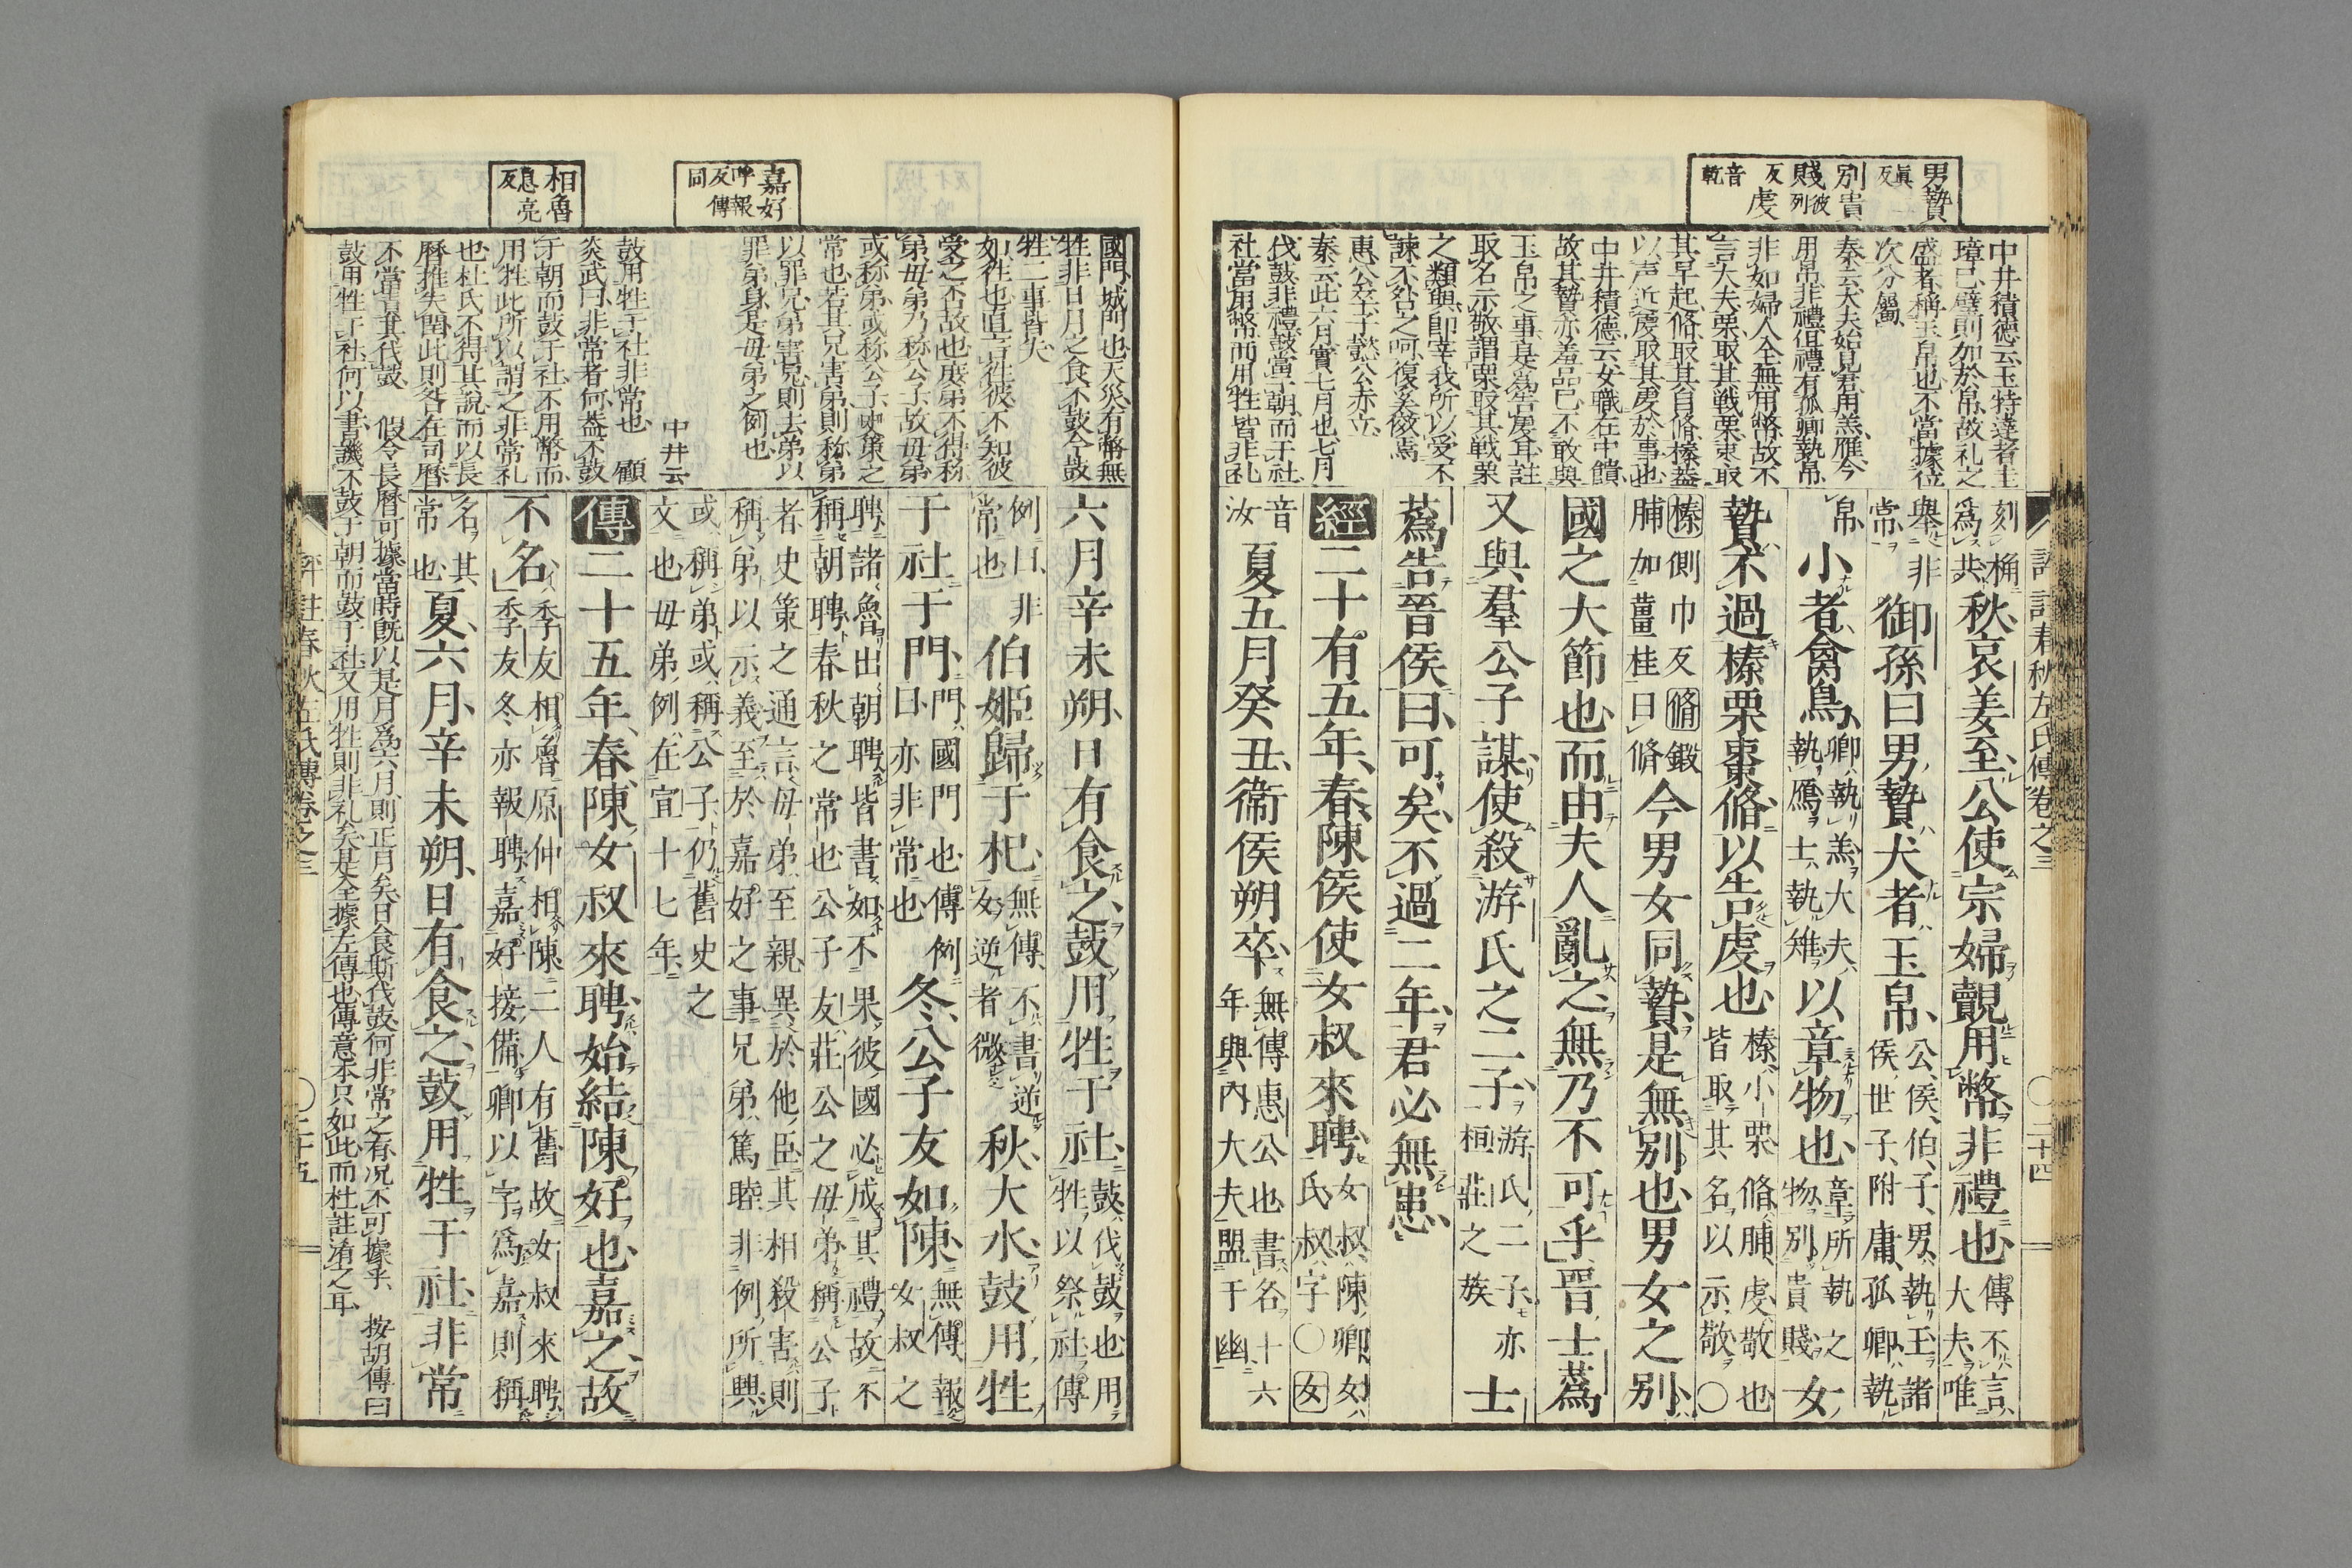 男贄
眞
反
別貴
賤
彼
列
反
虔
音
乾
中井積德云玉特達者圭
璋已璧則加於帛故礼之
盛者稱玉帛也不當據位
次分屬
秦云大夫始見君用羔雁今
用帛非禮但禮有孤卿執帛
非如婦人全無用幣故不
言大夫栗取其戰栗棗取
其早起脩取其自脩榛蓋
以声近虔取其虔於事也
中井積德云女職在中饋
故其贄亦羞品已不敢與
玉帛之事是爲告虔耳註
取名示敬謂栗取其戰栗
之類與即宰我所以受不
諫不咎之呵復奚傚焉
惠公卒子懿公赤立
秦云此六月實七月也七月
伐鼓非禮鼓當于朝而于社
社當用幣而用牲皆非礼
刻桷
爲共
秋哀姜至公使宗婦覿用幣非禮也
傳不言
大夫唯
舉非
常
御孫曰男贄大者玉帛
公侯伯子男執玉諸
侯世子附庸孤卿執
帛
小者禽鳥
卿執羔大夫
執鴈士執雉
以章物也
章所執之
物別貴賤
女
贄不過榛栗棗脩以告虔也
榛小栗脩脯虔敬也
皆取其名以示敬○
榛側巾反脩鍛
脯加薑桂曰脩
今男女同贄是無別也男女之別
國之大節也而由夫人亂之無乃不可乎晉士蔿
又與羣公子謀使殺游氏之二子
游氏二子亦
桓莊之族
士
蔿告晉侯曰可矣不過二年君必無患
經二十有五年春陳侯使女叔來聘
女叔陳卿女
氏叔字○女
音
汝
夏五月癸丑衞侯朔卒
無傳惠公也書名十六
年與內大夫盟于幽
評註春秋左氏傳卷之三
○二十四
嘉好
呼報
反傳
同
相魯
息亮
反
國門城門也天災有幣無
牲非日月之食不鼓今鼓
牲二事皆失
如往也直言往彼不知彼
受之否故也庶弟不得称
弟毋弟乃称公子故毋弟
或称弟或称公子史策之
常也若其兄害弟則称弟
以罪兄弟害兄則去弟以
罪弟身是毋弟之例也
中井云
鼓用牲于社非常也　顧
炎武曰非常者何蓋不鼓
于朝而鼓于社不用幣而
用牲此所以謂之非常礼
也杜氏不得其說而以長
曆推失閏此則咎在司曆
不當責其代鼓　假令長曆可據當時既以是月爲六月則正月矣日食斯伐鼓何非常之有况不可據乎　按胡傳曰
鼓用牲于社何以書譏不鼓于朝而鼓于社又用牲則非礼矣是全據左傳也傳意本只如此而杜註淆之耳
六月辛未朔日有食之鼓用牲于社
鼓伐鼓也用
牲以祭社傳
例曰非
常也
伯姬歸于杞
無傳不書逆
女逆者微
秋大水鼓用牲
于社于門
門國門也傳例
曰亦非常也
冬公子友如陳
無傳報
女叔之
聘諸魯出朝聘皆書如不果彼國必成其禮故不
稱朝聘春秋之常也公子友莊公之毋弟稱公子
者史策之通言毋弟至親異於他臣其相殺害則
稱弟以示義至於嘉好之事兄弟篤睦非例所興
或稱弟或稱公子仍舊史之
文也毋弟例在宣十七年
傳二十五年春陳女叔來聘始結陳好也嘉之故
不名
季友相魯原仲相陳二人有舊故女叔來聘
季友冬亦報聘嘉好接備卿以字爲嘉則稱
名其
常也
夏六月辛未朔日有食之鼓用牲于社非常
評註春秋左氏傳卷之三
○二十五